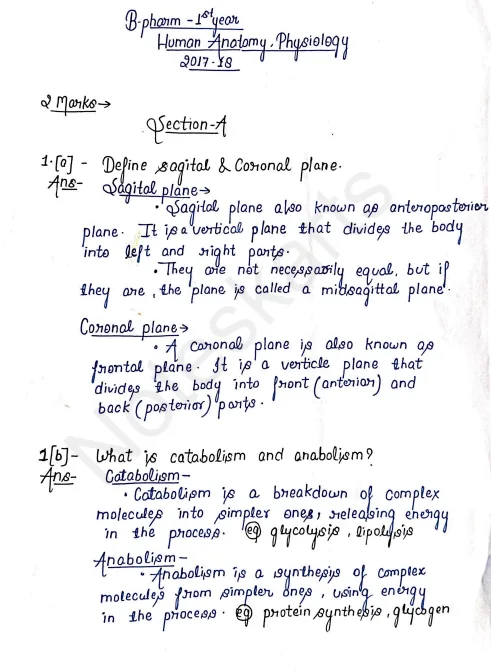 B-pharm - 1st year
Human Anatomy. Physiology
2017-18
2 Marks →
Section-A
1.[a] - Define sagital & Coronal plane.
Ans- Sagital plane →
• Sagital plane also known as anteroposterior
plane. It is a vertical plane that divides the body
into left and right parts.
• They are not necessarily equal, but if
they are, the plane is called a midsagittal plane.
Coronal plane →
• A coronal plane is also known as
frontal plane. It is a verticle plane that
divides the body into front (anterior) and
back (posterior) parts.
1[b] - What is catabolism and anabolism?
Ans- Catabolism -
• Catabolism is a breakdown of complex
molecules into simpler ones, releasing energy
in the process. eg glycolysis, lipolysis
Anabolism -
• Anabolism is a synthesis of complex
molecules from simpler ones, using energy
in the process. eg protein synthesis, glycogen
Noteskarts